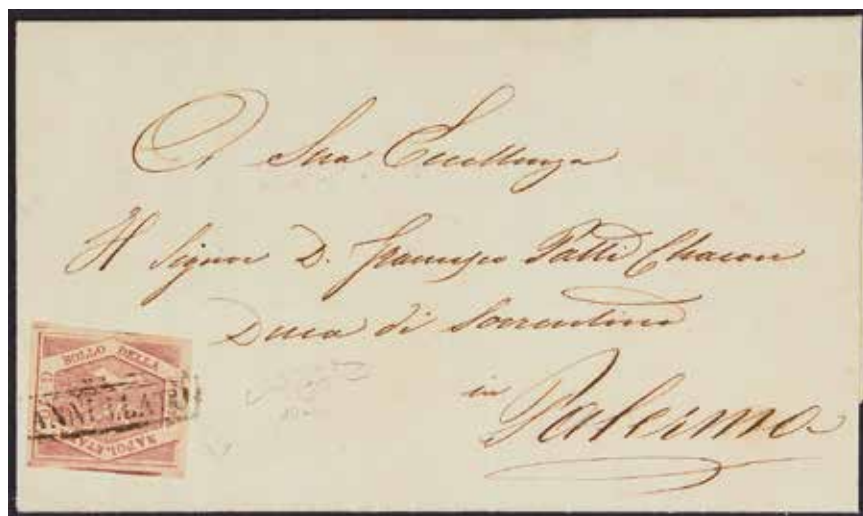 A Sua Eccellenza
Il Signor D. Francesco Tatti Chacon
Duca di Sorrentino
in
Palermo
BOLLO DELLA
ANNULLATO
NAPOLETA